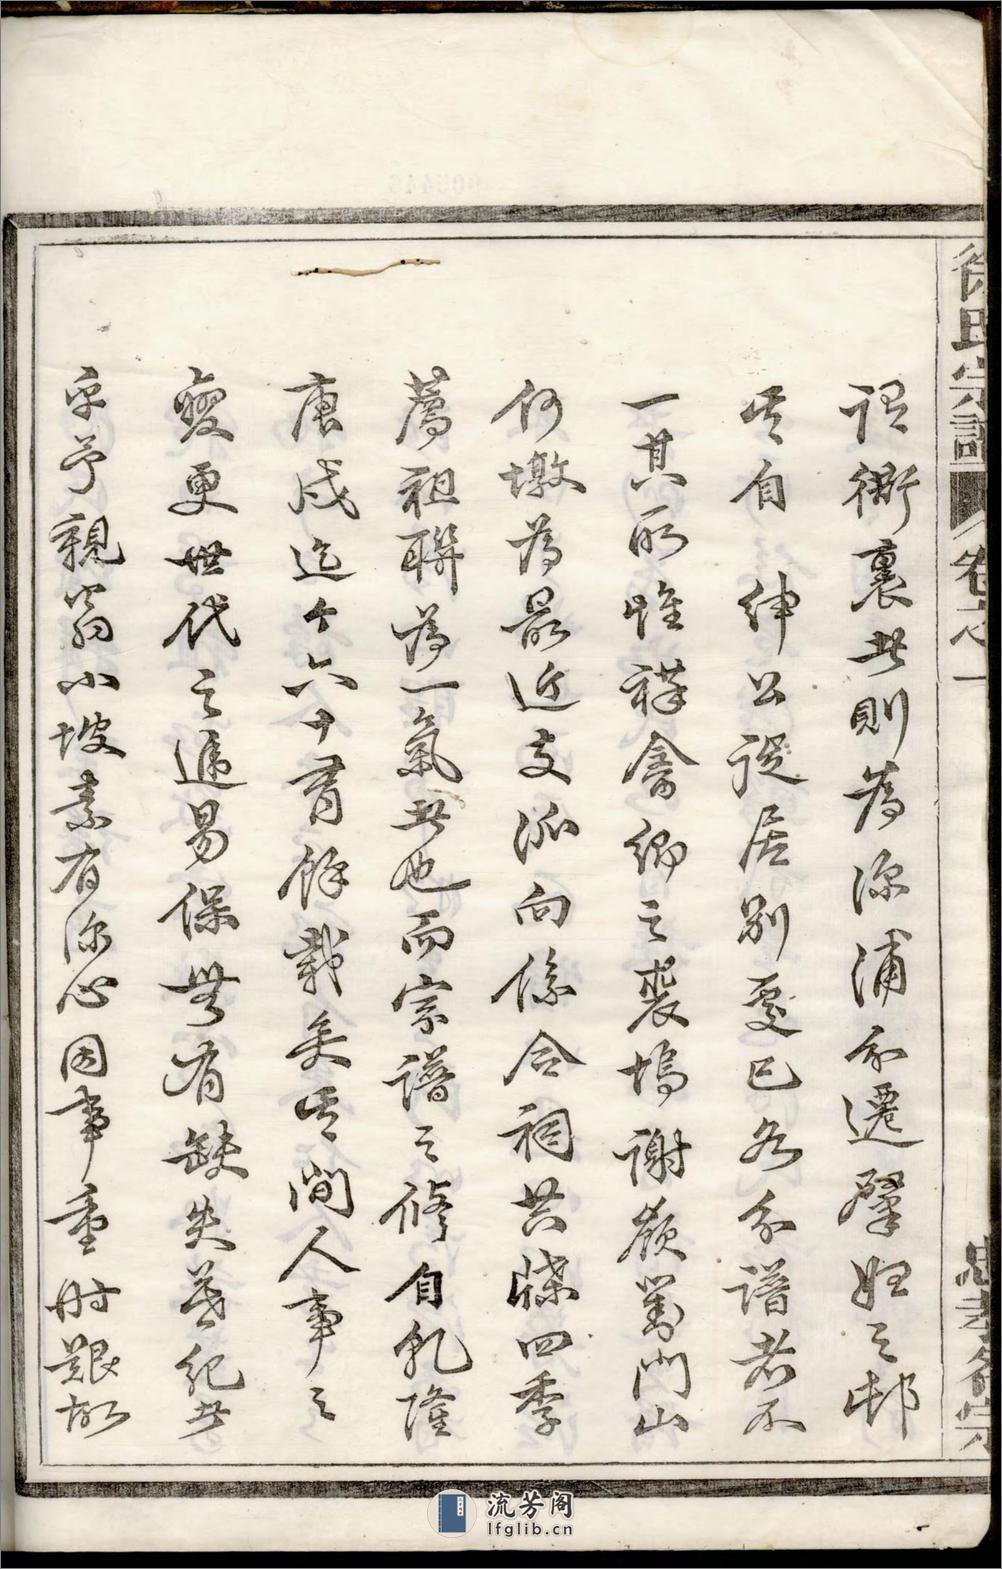 徐氏宗譜 卷之一 忠孝名宗
衢裏者則為深浦分遷肇姓之邨
其自 紳公從居別處已各分譜者不
一其所惟祥禽鄉之裘塢謝嶺嵩門山
何墩為最近支派向係合祠共牒四季
薦祖聯為一氣者也而宗譜之修自乾隆
庚戌迄今六十有餘載矣其間人事之
變更世代之遞易保無有缺失若紀者
乎予親翁小坡素有深心因事重時艱故
流芳阁
lfglib.cn